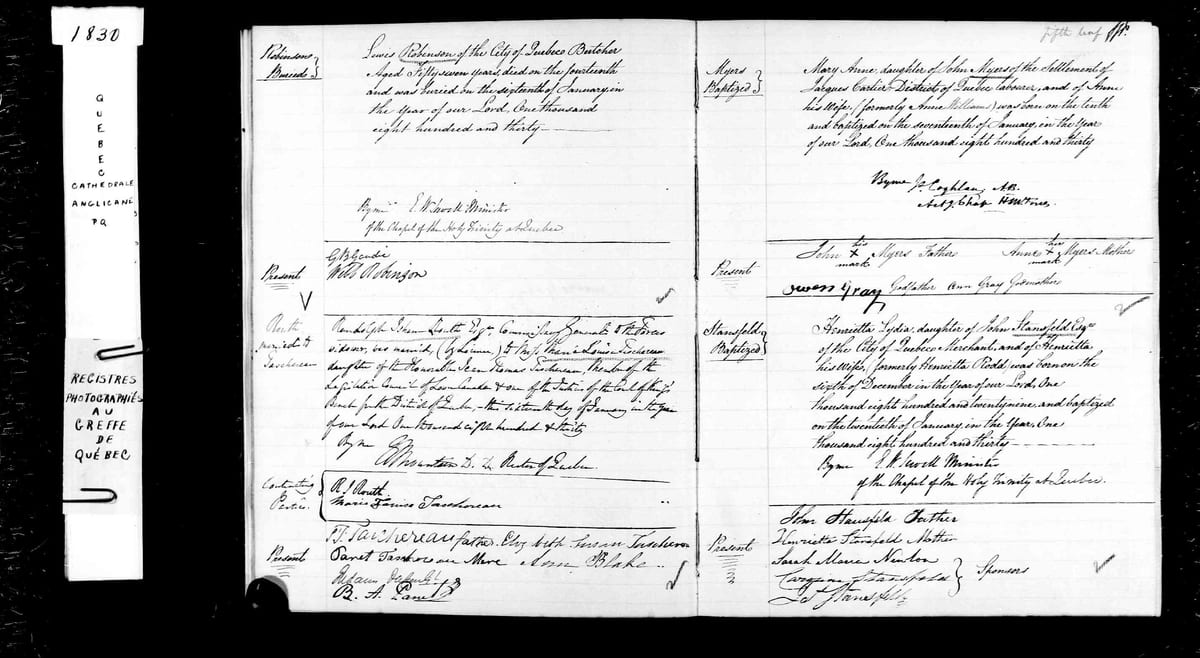 1830
QUEBEC
CATHEDRALE
ANGLICANE
PQ
REGISTRES
PHOTOGRAPHIÉS
AU
GREFFE
DE
QUÉBEC
Robinson
Buried
Lewis Robinson of the City of Quebec Butcher
Aged Fifty seven years, died on the fourteenth
and was buried on the sixteenth of January, in
the Year of our Lord, One thousand
eight hundred and thirty
By me E. W. Sewell Minister
of the Chapel of the Holy Trinity at Quebec
Present
Will Robinson
Routh
married to
Taschereau
Randolph Isham Routh Esqr. Commissary General to the Forces
widower, was married, (by Licence,) to Miss Marie Louise Taschereau
daughter of the Honorable Jean Thomas Taschereau, Member of the
Legislative Council of Lower Canada & one of the Justices of the Court of King's
Bench for the District of Quebec, this sixteenth day of January in the Year
of our Lord One thousand eight hundred & thirty
By me
G J Mountain D. D. Rector of Quebec
Contracting
Parties
R I Routh
Marie Louise Taschereau
Present
J T Taschereau father. Eliz Susan Taschereau
Panet Taschereau Mere Ann Blake
fifth leaf
Myers
Baptized
Mary Anne, daughter of John Myers of the Settlement of
Jacques Cartier District of Quebec labourer, and of Anne
his Wife, (formerly Anne Williams) was born on the tenth
and baptized on the seventeenth of January, in the Year
of our Lord, One thousand eight hundred and thirty
By me Js. Coghlan, AB.
Actg. Chap H.M. Forces.
Present
John his x mark Myers Father Anne her x mark Myers Mother
Owen Gray Godfather Ann Gray Godmother
Stansfeld
Baptized
Henrietta Lydia, daughter of John Stansfeld Esqre
of the City of Quebec Merchant, and of Henrietta
his Wife, (formerly Henrietta Rodd) was born on the
sixth of December in the Year of our Lord, One
thousand eight hundred and twenty nine, and baptized
on the twentieth of January, in the Year, One
thousand eight hundred and thirty
By me E. W. Sewell Minister
of the Chapel of the Holy Trinity at Quebec.
Present
John Stansfeld Father
Henrietta Stansfeld Mother
Sarah Maria Newton
Caroline Stansfeld
Sponsors